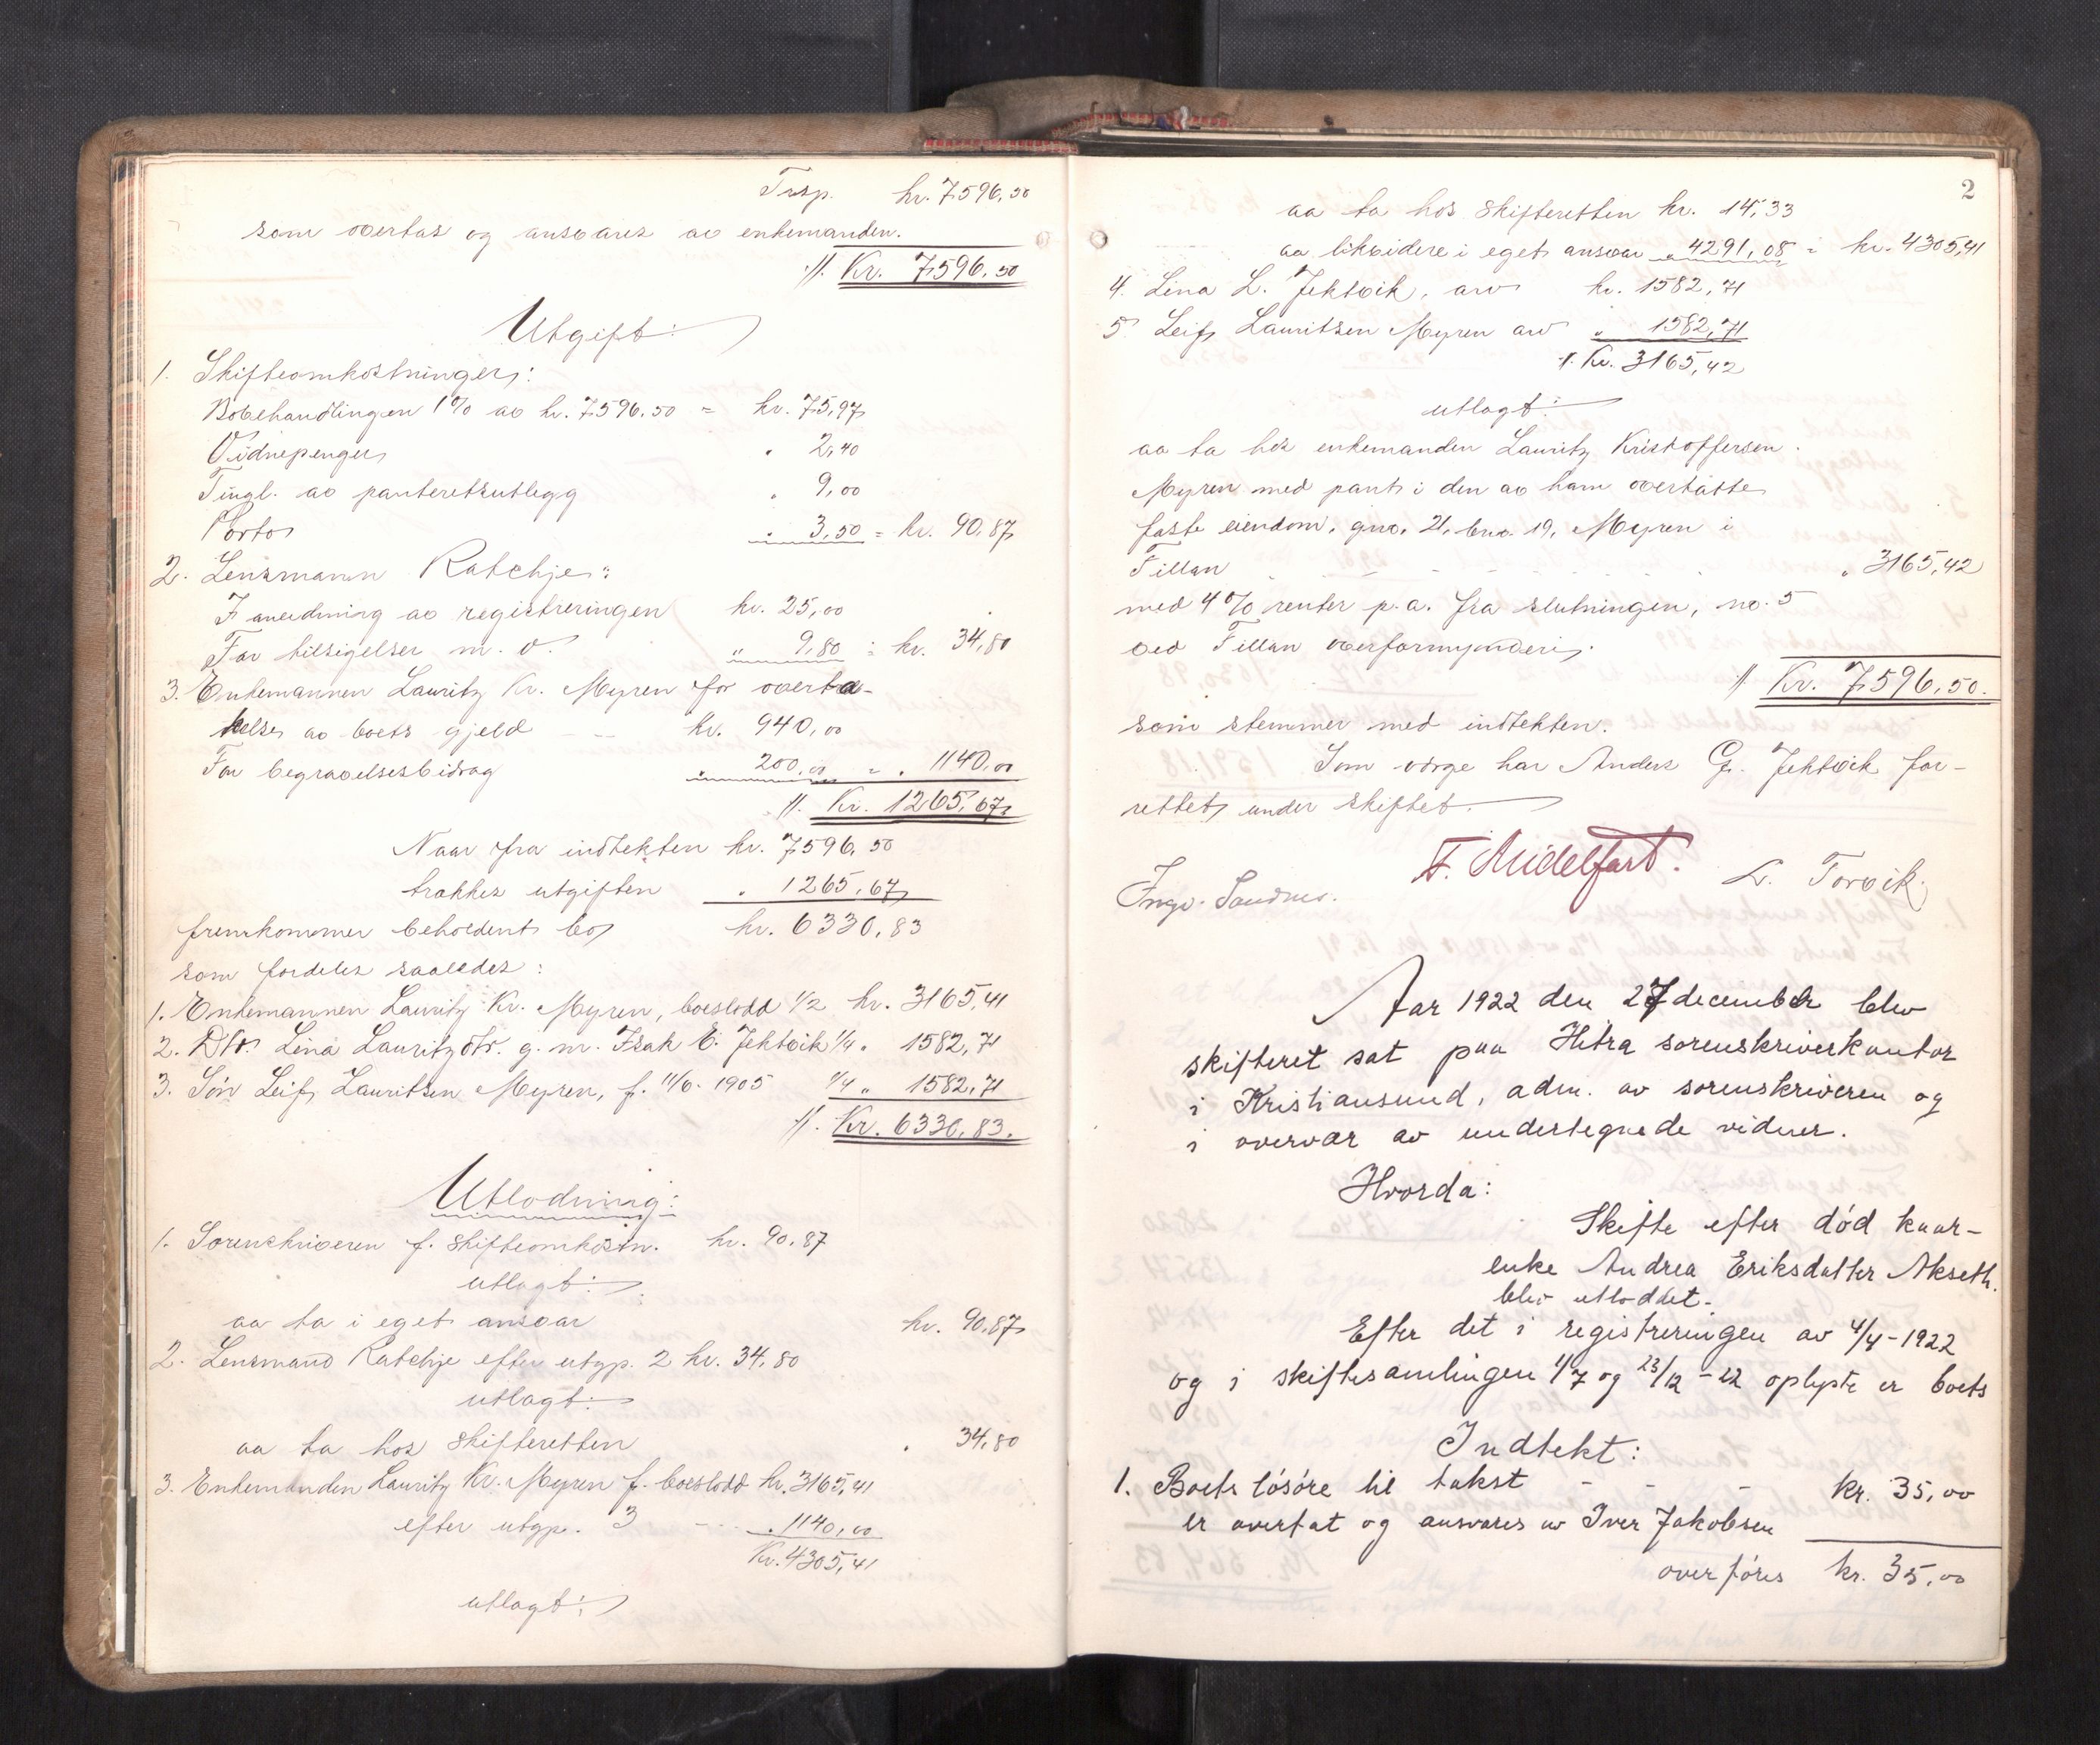 Trsp. kr. 7596,50
som overtas og ansvares av enkemanden.
//. Kr. 7596,50
Utgift:
1. Skifteomkostninger:
Bobehandlingen 1% av kr. 7596.50 = kr. 75,97
Vidnepenger " 2,40
Tingl. av panteretsutlegg " 9,00
Porto " 3,50 = kr. 90,87
2. Lensmann Ratchje:
F anledning av registreringen kr. 25,00
For tilsigelser m. v. " 9,80 = kr. 34,80
3. Enkemannen Lauritz Kr. Myren for overta-
kelse av boets gjeld - - kr. 940,00
For begravelsesbidrag " 200,00 = " 1140,00
//. Kr. 1265,67
Naar fra indtekten kr. 7596,50
trækkes utgiften " 1265,67
fremkommer beholdent bo kr. 6330,83
som fordeles saaledes:
1. Enkemannen Lauritz Kr. Myren, boeslodd 1/2 kr. 3165,41
2. Dtr. Lina Lauritzdtr. g. m. Isak E. Jektvik 1/4 " 1582,71
3. Søn Leif Lauritsen Myren, f. 11/6-1905 1/4 " 1582,71
//. Kr. 6330,83.
Utlodning:
1. Sorenskriveren f. skifteomkostn. kr. 90,87
utlagt:
aa ta i eget ansvar kr. 90,87
2. Lensmand Ratchje efter utgp. 2 kr. 34,80
utlagt:
aa ta hos skifteretten " 34,80
3. Enkemanden Lauritz Kr. Myren f. boeslodd kr. 3165,41
efter utgp. 3 - - - " 1140,00
Kr. 4305,41
utlagt:
2
aa ta hos skifteretten kr. 14,33
aa likvidere i eget ansvar " 4291,08 = kr. 4305,41
4. Lina L. Jektvik, arv kr. 1582,71
5 Leif Lauritsen Myren arv " 1582,71
//. Kr. 3165,42
utlagt:
aa ta hos enkemanden Lauritz Kristoffersen
Myren med pant i den av ham overtatte
faste eiendom, gno. 21, bno. 19, Myren i
Fillan - - - - - - " 3165,42
med 4% renter p.a. fra slutningen, no. 5
ved Fillan overformynderi.
// Kr. 7596,50.
som stemmer med indtekten.
Som verge har Anders G. Jektvik for-
rettet under skiftet.
Ingv. Sandnes. F. Midelfart. L. Torvik.
Aar 1922 den 27 december blev
skifteret sat paa Hitra sorenskriverkontor
i Kristiansund, adm. av sorenskriveren og
i overvær av undertegnede vidner.
Hvorda:
Skifte efter død kaar-
enke Andrea Eriksdatter Akseth.
blev utloddet.
Efter det i registreringen av 4/4-1922
og i skiftesamlingen 1/7 og 23/12-22 oplyste er boets
Indtekt:
1. Boets løsøre til takst - - - kr. 35,00
er overtat og ansvares av Iver Jakobsen
overføres kr. 35,00